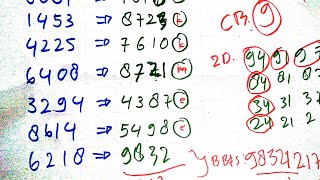 1453 ⇒ 8723
4225 ⇒ 7610
6408 ⇒ 8721
3294 ⇒ 4387
8614 ⇒ 5498
6218 ⇒ 9832
CB. 9
2D. 94 91 97
84 81 8
34 31 3
24 21 2
BBFS 9834217